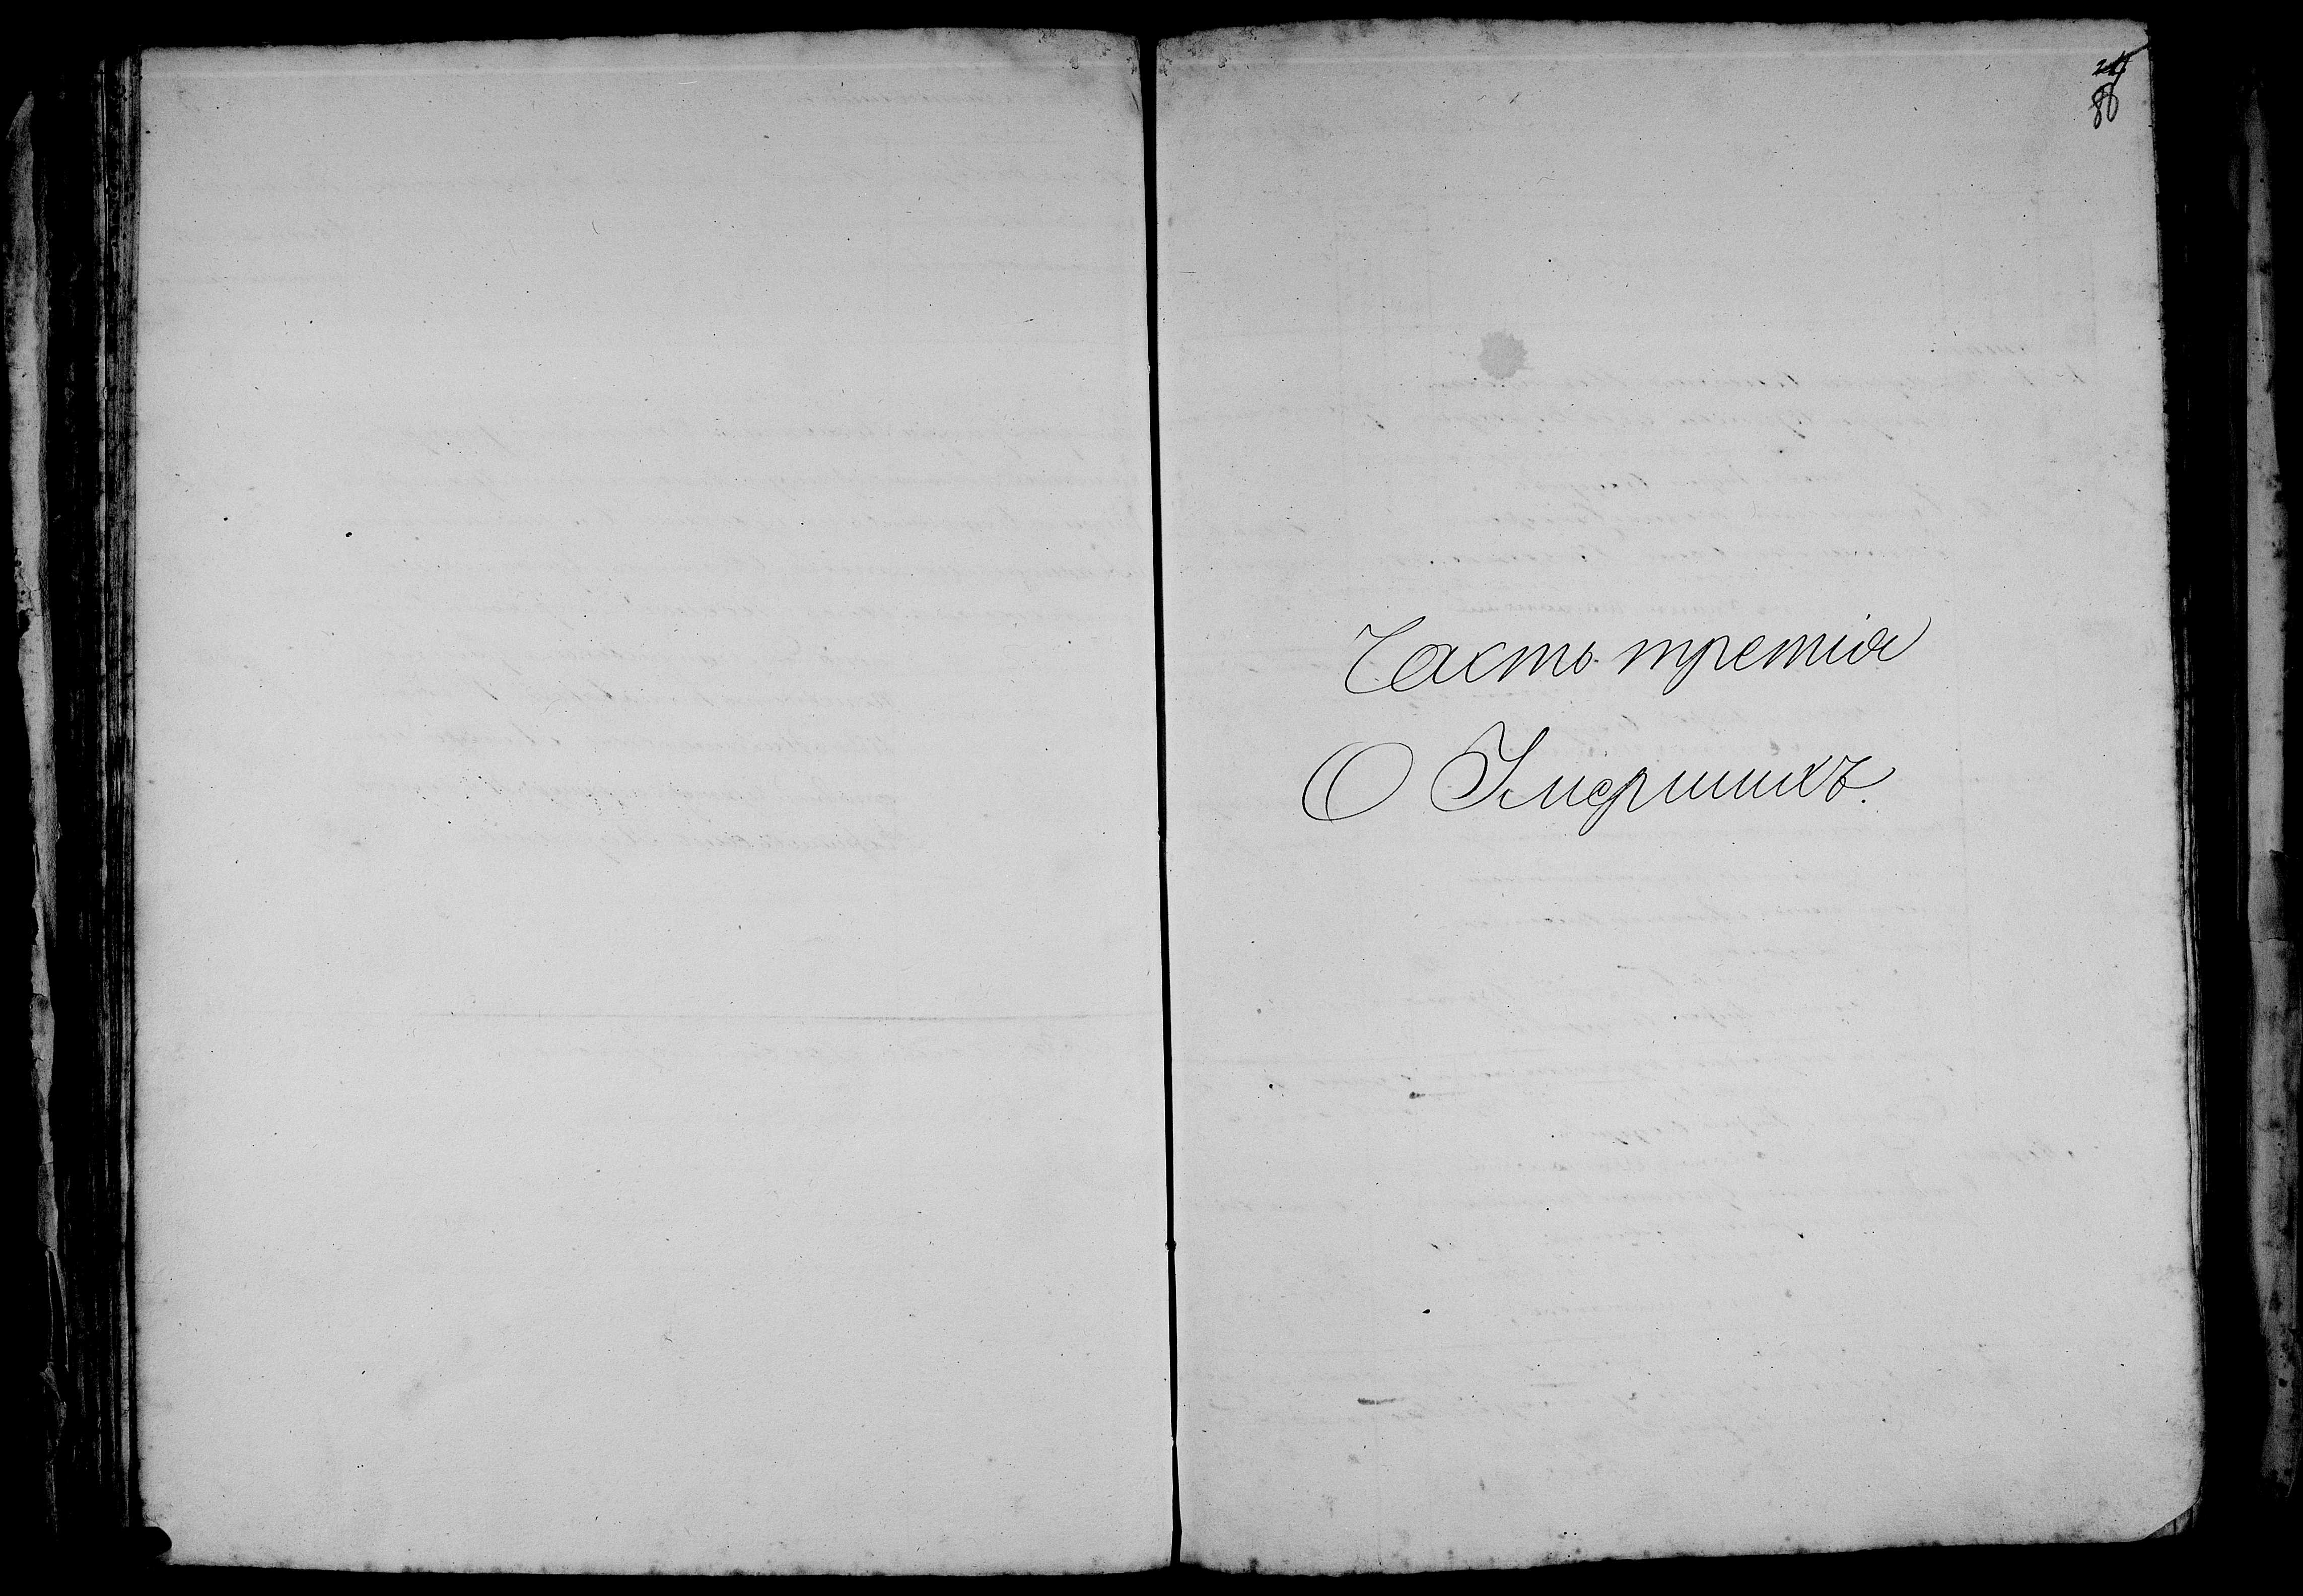 80
Часть третія
О Умершихъ.